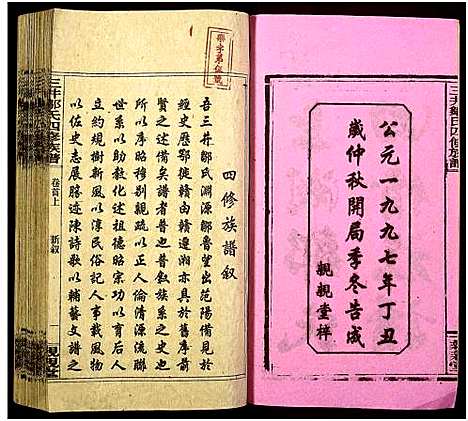 三井鄒氏四修族譜
公元一九九七年丁丑
歲仲秋開局季冬告成
親親堂梓
四修族譜叙
吾三井鄒氏淵源鄒魯望出范陽備見於
經史歷鄂徙贛由贛遷湘亦具於舊序前
述之備矣譜者普也普叙族系之史也
所以序昭穆别親疏以正人倫清源流聯
世系以助教化述祖德昭宗功以育后人
立約規樹新風以淳民俗記人事載風物
以佐史志展勝迹陳詩歌以輔藝文譜之
三井鄒氏四修族譜
卷首上
新叙
親親堂